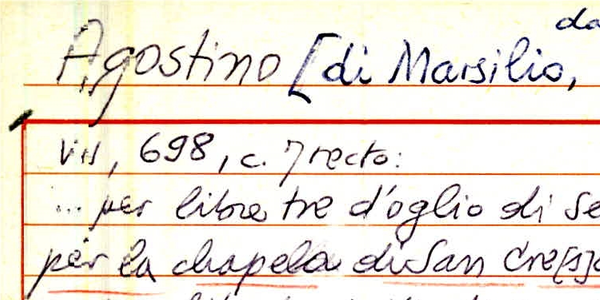 da
Agostino [di Marsilio,
VII, 698, c. 7 recto:
... per libre tre d'oglio di se
per la chapela di San Cre[s]c